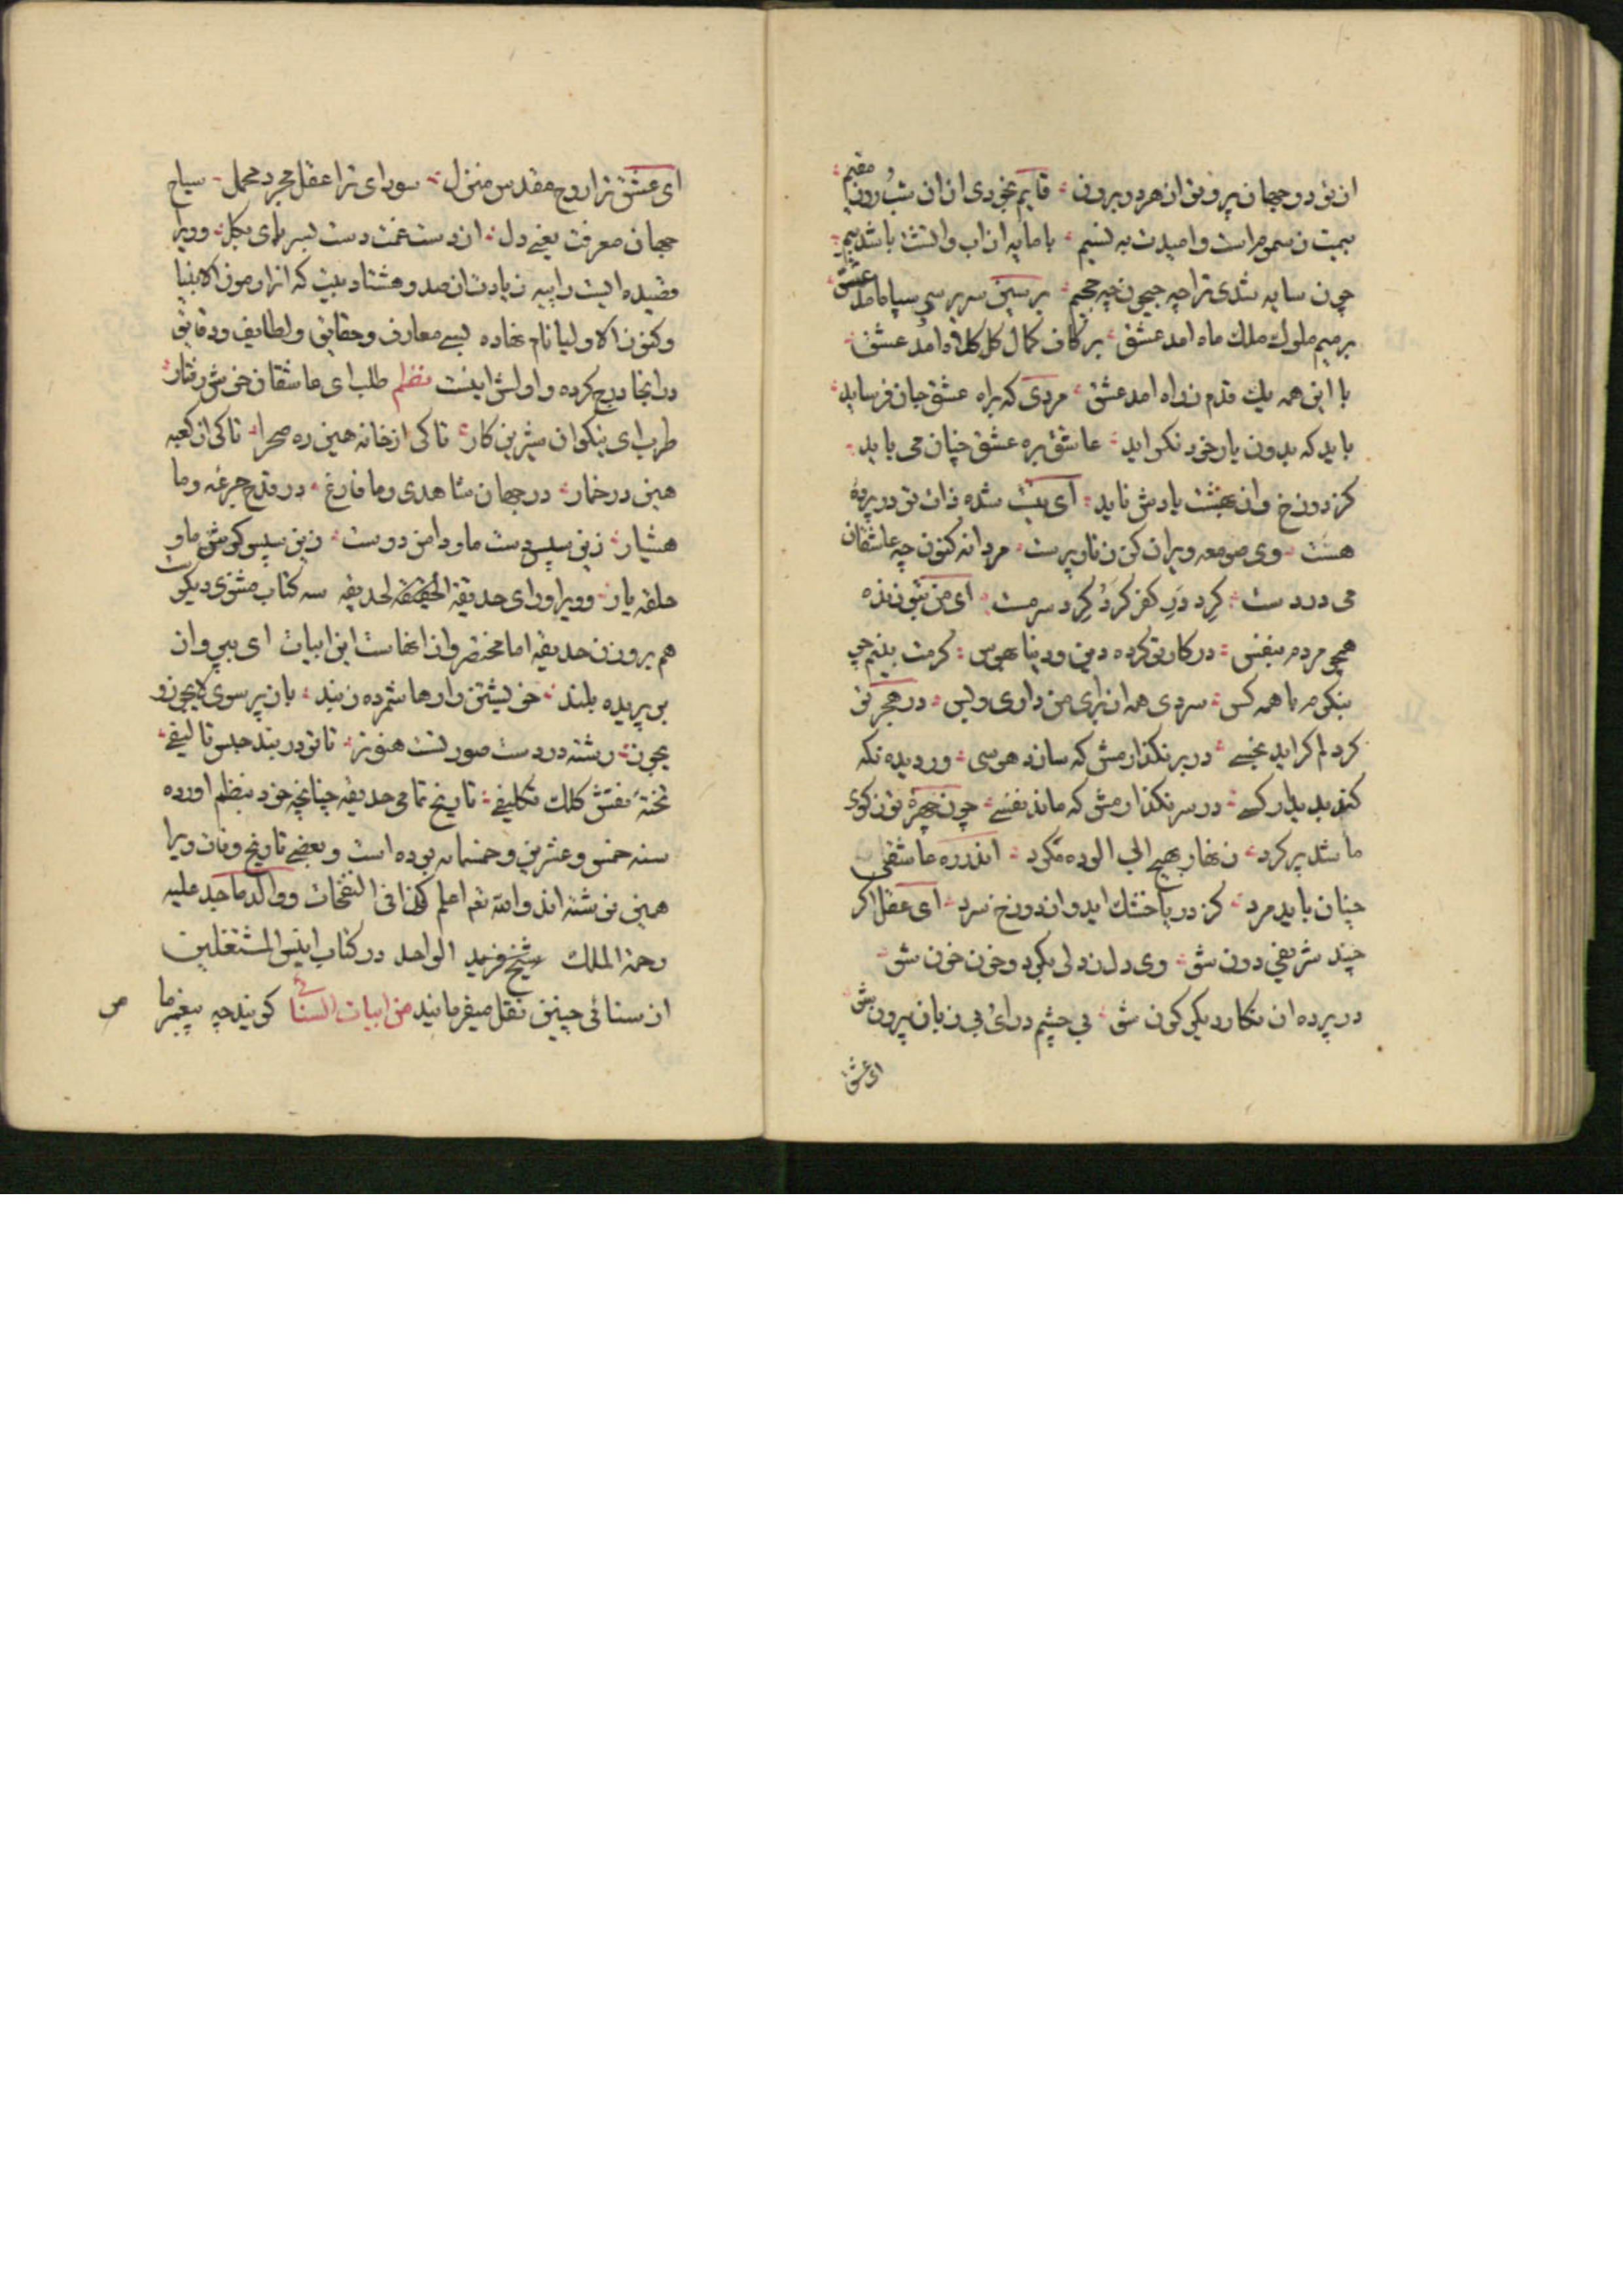 از تو دو جهان پر و تو از هر دو برون قایم بخودی ازان شب و روز مقیم
بیمت ز سموم است و امیدت به نسیم با مایه از اب و اتش باشد بیم
چون سایه شدی ترا چه جیحون چه جحیم بر سین سریر سر سپاه امد عشق
بر میم ملوك ملك ماه امد عشق بر کاف کمال کل کلاه امد عشق
با این همه یك قدم ز راه امد عشق مردی که براه عشق جان فرساید
باید که بدون یار خود نکراید عاشق بره عشق چنان می باید
کز دوزخ و از بهشت یادش ناید ای نیست شده ذات تو در پردهٔ
هست وی صومعه ویران کن زنار پرست مردانه کنون چه عاشقان
می در دست کرد در کفر کرد و کرد سر مست ای من بتو زنده
همچو مردم بنفس در کار تو کرده دین و دنیا بهوس کرمت بینم چو
بنکرم با همه کس سردی همه از برای من داری و بس در هجر تو
کر دلم کراید بخسی در بر نکذارمش که سازد هوسی ور دیده نکه
کند بدیدار کسے در سر نکذارمش که ماند نفسے چون چهرهٔ تو ز کوی
ما شد پر کرد زنهار بهیچ ابی الوده مکرد اندر ره عاشقی
چنان باید مرد کز دریا خشك اید و از دوزخ سرد ای عقل اکر
چند شریفی دون شو وی دل ز دلی بکرد و خون خون شو
در پرده ان نکار دیکر کون شو بی چشم درای و بی زبان بیرون شو
ای عشق
ای عشق ترا روح مقدس منزل سودای ترا عقل مجرد محمل سیاح
جهان معرفت یعنے دل از دست غمت دست بسر پای بکل و ویرا
قصیده ایست راییه زیادت از صد و هشتاد بیت که انرا رموز الانبیا
و کنوز الاولیا نام نهاده بسے معارف و حقایق و لطایف و دقایق
در انجا درج کرده و اولش اینست نظم طلب ای عاشقان خوش رفتار
طرب ای نیکوان شیرین کار تا کی از خانه هین ره صحرا تا کی از کعبه
هین در خمار در جهان شاهدی و ما فارغ در قدح جرعه و ما
هشیار زین سپس دست ما و دامن دوست زین سپس کوش ما و
حلقه یار و ویرا ورای حدیقة الحقیقه سه کتاب مثنوی دیکرست
هم بر وزن حدیقه اما مختصر و از انهاست این ابیات ای بپرواز
بر پریده بلند خویشتن را رها شمرده ز بند باز پر سوی لا یجوز و
یجوز رشته در دست صورتست هنوز تا تو در بند حبس تالیفے
تختهٔ نقش کلك تکلیفے تاریخ تمامی حدیقه چنانچه خود بنظم اورده
سنه خمس و عشرین و خمسمایه بوده است و بعضے تاریخ وفات ویرا
همین نوشته اند و الله تعم اعلم کذا فی النفحات و والد ماجد علیه
رحمة الملك شیخ فرید الواحد در کتاب انیس المشتغلین
از سنائی چنین نقل میفرمایند من ابیات السنائے کویند چه پیغمبر ما